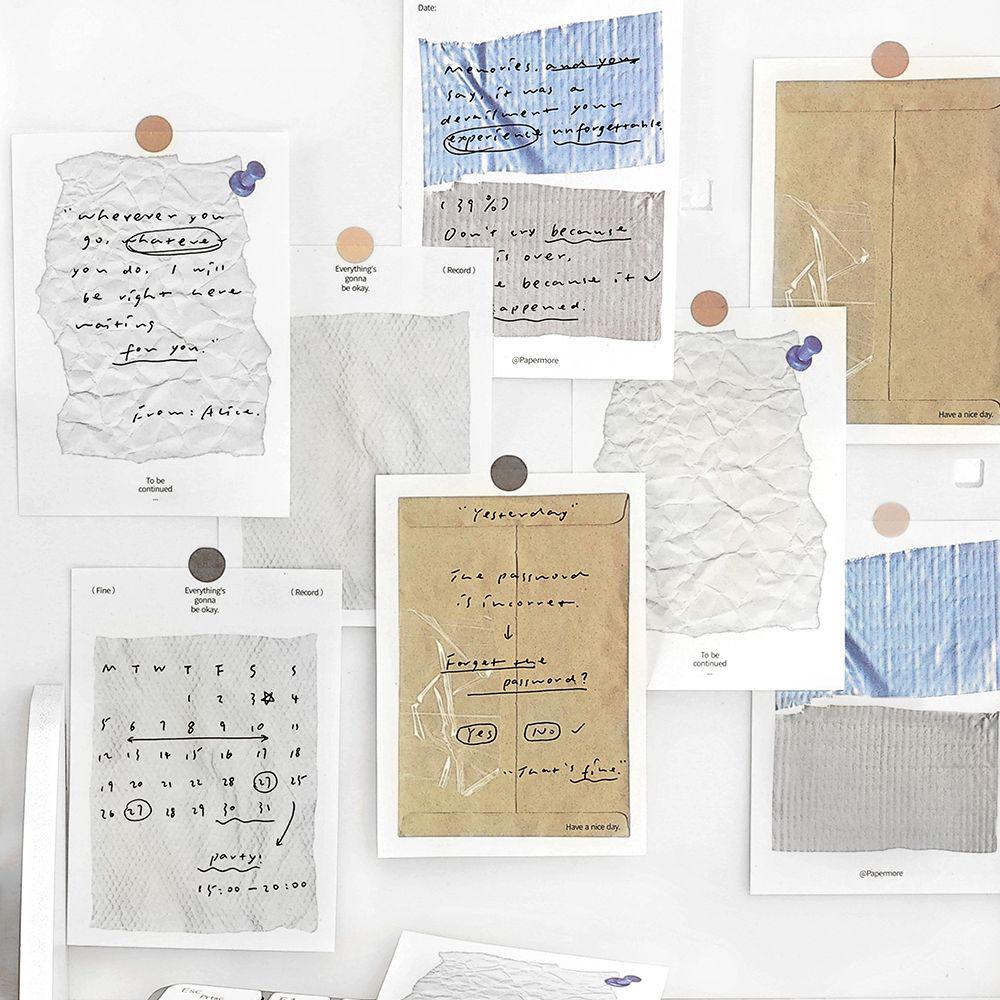 Date:
Memories. and you
say, it was a
derailment your
experience unforgettable.
(39%)
Don't cry because
is over,
e because it
appened.
@Papermore
"wherever you
go. whatever
you do. I will
be right here
waiting
for you."
From: Alice.
To be
continued
...
Everything's
gonna
be okay.
(Record)
Have a nice day.
To be
continued
...
"Yesterday"
The password
is incorret.
↓
Forget the
password?
Yes No ✓
"That's fine."
Have a nice day.
(Fine)
Everything's
gonna
be okay.
(Record)
M T W T F S S
1 2 3 4
5 6 7 8 9 10 11
12 13 14 15 16 17 18
19 20 21 22 28 27 25
26 27 28 29 30 31
party!
15:00 - 20:00
@Papermore
Esc